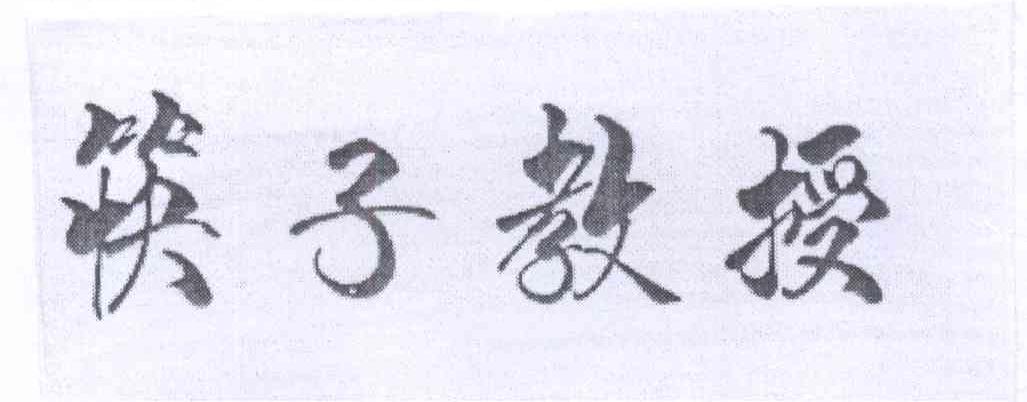 筷子教授